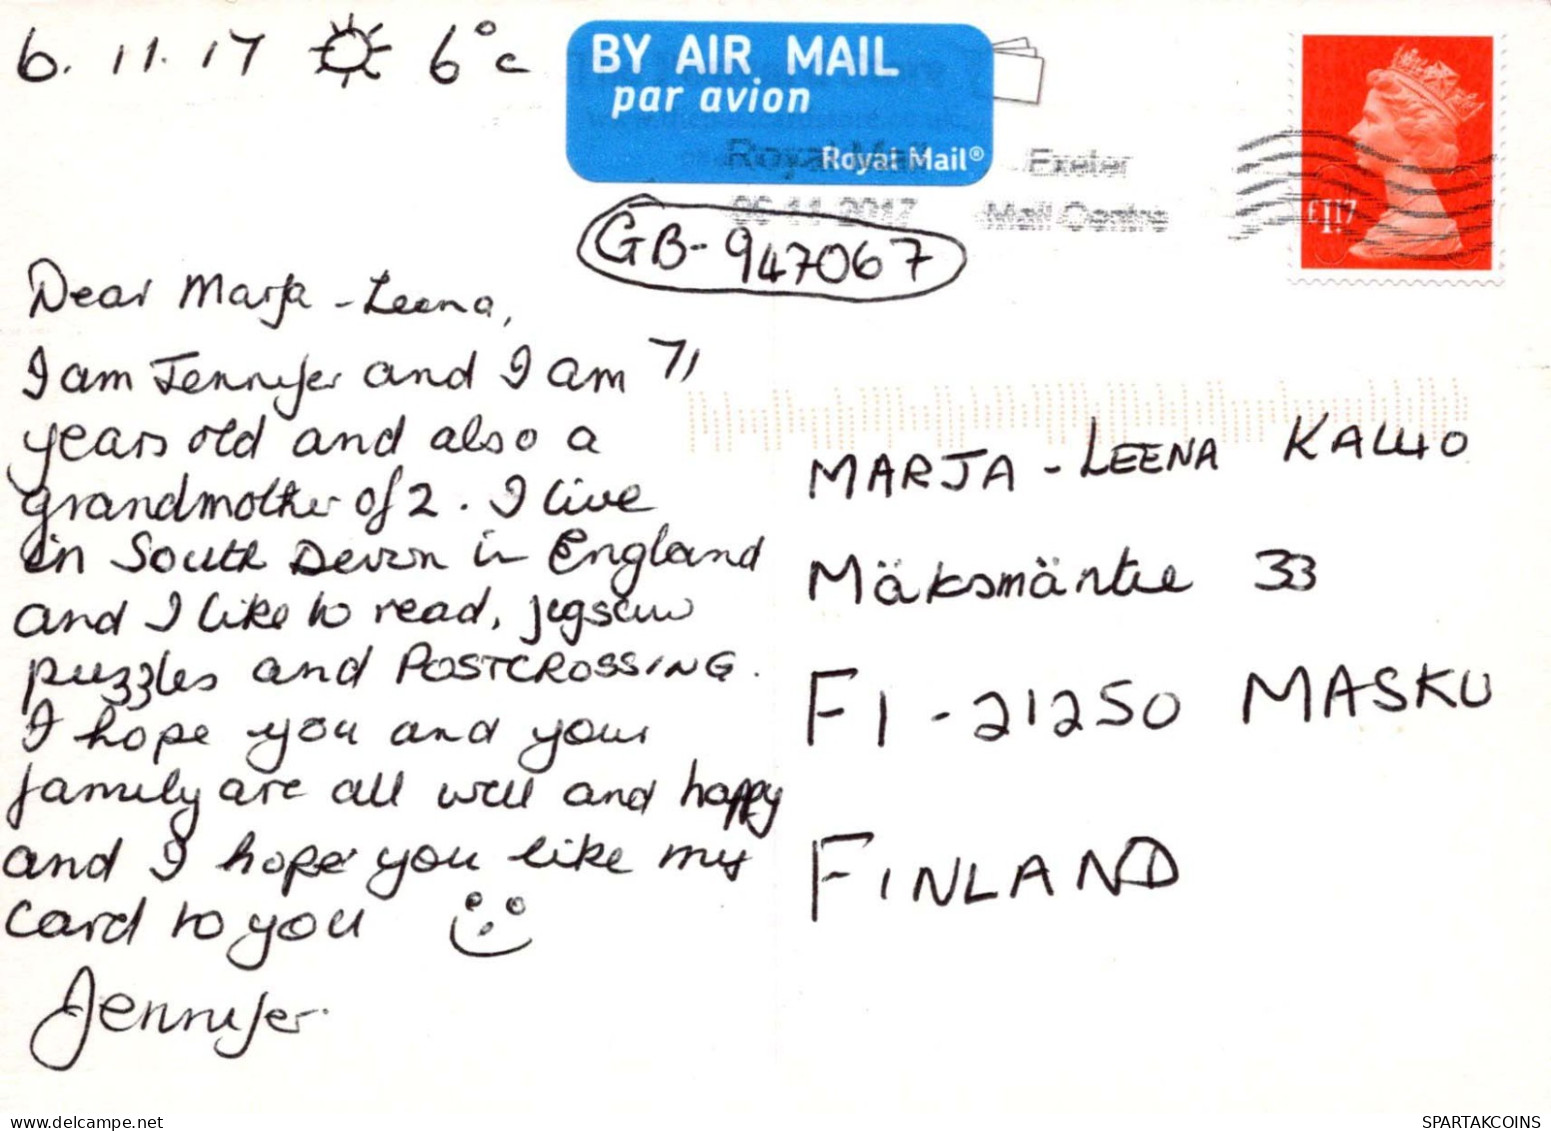 6.11.17 6°c
BY AIR MAIL
par avion
Royal Mail®
Royal Mail Exeter
06-11-2017 Mail Centre
£1.17
GB-947067
Dear Marja-Leena,
I am Jennifer and I am 71
years old and also a
grandmother of 2. I live
in South Devon in England
and I like to read, jigsaw
puzzles and POSTCROSSING.
I hope you and your
family are all well and happy
and I hope you like my
card to you
Jennifer.
MARJA-LEENA KALLIO
Mäksmäntie 33
FI-21250 MASKU
FINLAND
delcampe.net
SPARTAKCOINS